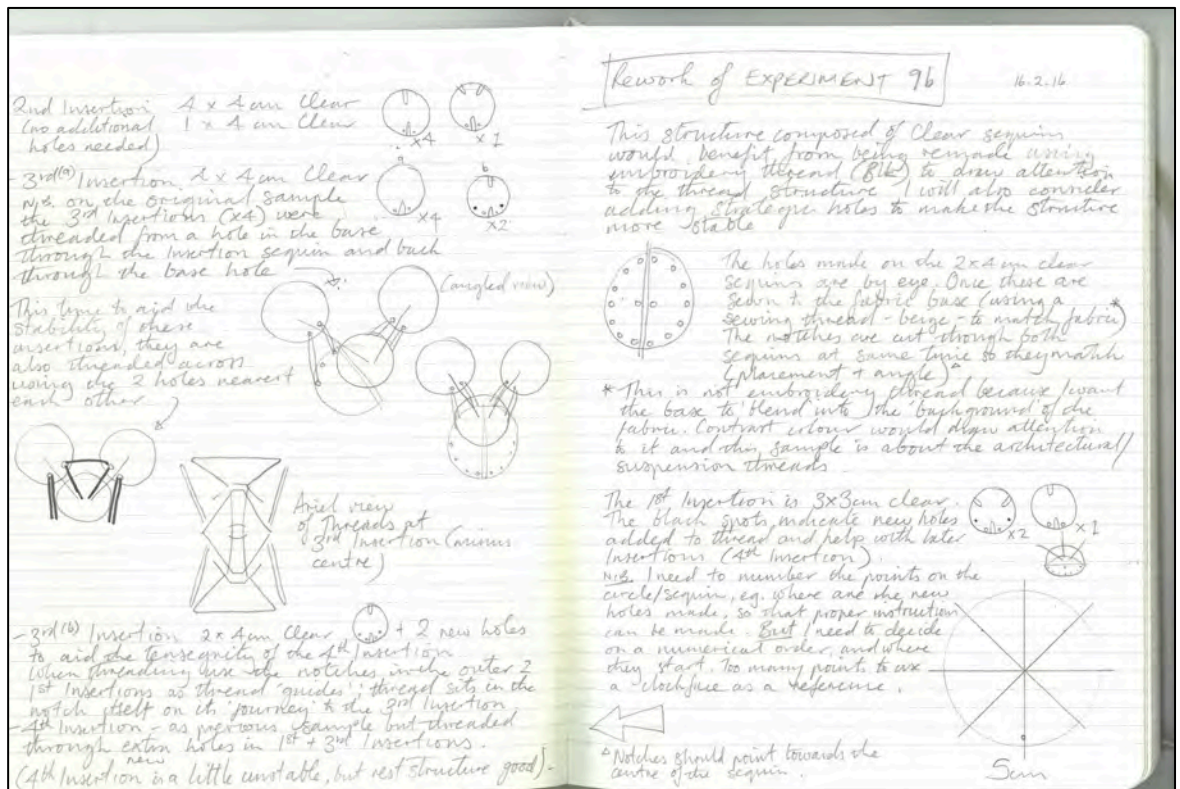 2nd Insertion 4 x 4 cm Clear
(no additional 1 x 4 cm Clear
holes needed)
x4
x1
- 3rd (a) Insertion 4 x 4 cm Clear
N.B. on the original sample
the 3rd Insertions (x4) were
threaded from a hole in the base
through the Insertion sequin and back
through the base hole
a
x4
b
x2
(angled view)
This time to aid the
stability of these
insertions, they are
also threaded across
using the 2 holes nearest
each other
Ariel view
of Threads at
3rd Insertion (minus
centre)
- 3rd (b) Insertion 2 x 4 cm Clear + 2 new holes
to aid the tensegrity of the 4th Insertion
When threading use the notches in the outer 2
1st Insertions as thread 'guides': thread sits in the
notch itself on its 'journey' to the 3rd Insertion
- 4th Insertion - as previous sample but threaded
through extra holes in 1st + 3rd Insertions.
new
(4th Insertion is a little unstable, but rest structure good).
Rework of EXPERIMENT 9b
16.2.16
This structure composed of Clear sequins
would benefit from being remade using
embroidery thread (Blk) to draw attention
to the thread structure I will also consider
adding strategic holes to make the structure
more stable
The holes made on the 2x4cm clear
sequins are by eye. Once these are
sewn to the fabric base (using a *
sewing thread - beige - to match fabric)
The notches are cut through both
sequins at same time so they match
(placement + angle) △
* This is not embroidery thread because I want
the base to 'blend into' the background of the
fabric. Contrast colour would draw attention
to it and this sample is about the architectural/
suspension threads
The 1st Insertion is 3x3cm clear.
The black spots indicate new holes
added to thread and help with later
Insertions (4th Insertion).
x2
x1
N.B. I need to number the points on the
circle/sequin, eg. where are the new
holes made, so that proper instruction
can be made. But I need to decide
on a numerical order, and where
they start. Too many points to use
a clockface as a reference.
△ Notches should point towards the
centre of the sequin.
5cm